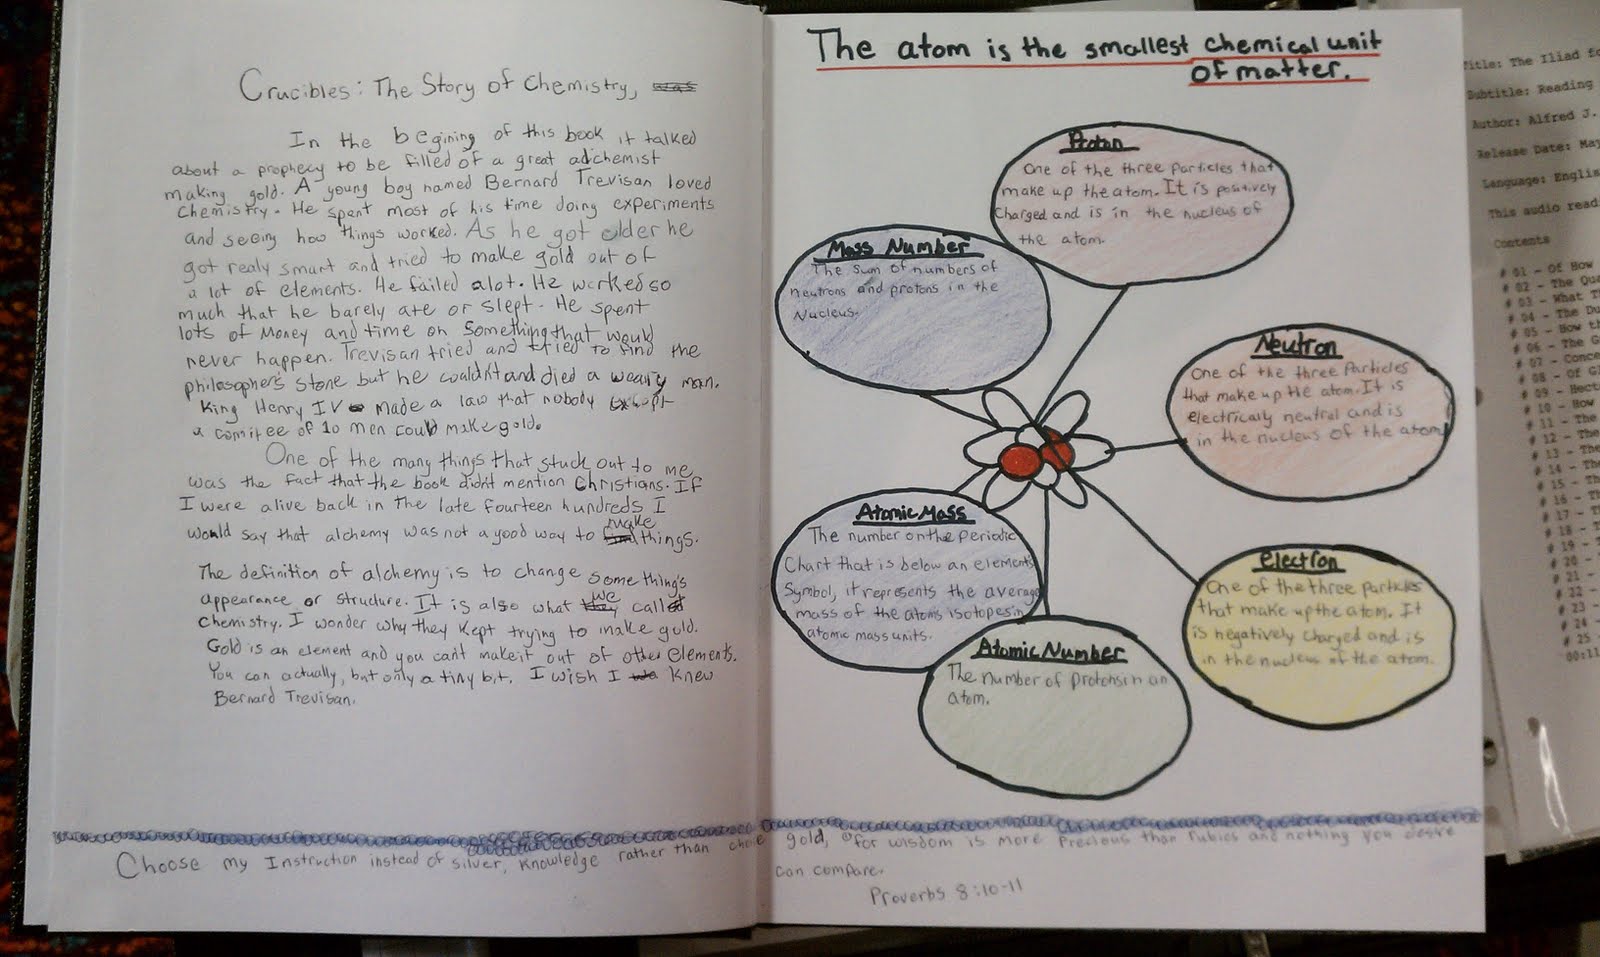 Crucibles: The Story of Chemistry,
In the begining of this book it talked
about a prophecy to be filled of a great adchemist
making gold. A young boy named Bernard Trevisan loved
Chemistry. He spent most of his time doing experiments
and seeing how things worked. As he got older he
got realy smart and tried to make gold out of
a lot of elements. He failed alot. He worked so
much that he barely ate or slept. He spent
lots of Money and time on something that would
never happen. Trevisan tried and tried to find the
philosopher's stone but he couldn't and died a weary man.
King Henry IV made a law that nobody except
a comitee of 10 men could make gold.
One of the many things that stuck out to me
was the fact that the book didn't mention Christians. If
I were alive back in the late fourteen hundreds I
would say that alchemy was not a good way to make things.
The definition of alchemy is to change something's
appearance or structure. It is also what we call
chemistry. I wonder why they kept trying to make gold.
Gold is an element and you can't make it out of other elements.
You can actually, but only a tiny bit. I wish I knew
Bernard Trevisan.
The atom is the smallest chemical unit
of matter.
Proton
One of the three particles that
make up the atom. It is positively
charged and is in the nucleus of
the atom.
Mass Number
The sum of numbers of
neutrons and protons in the
Nucleus.
Neutron
One of the three particles
that make up the atom. It is
electricaly neutral and is
in the nucleus of the atom
Atomic Mass
The number on the periodic
Chart that is below an elements
Symbol, it represents the average
mass of the atoms isotopes in
atomic mass units.
Electron
One of the three particles
that make up the atom. It
is negatively charged and is
in the nucleus of the atom.
Atomic Number
The number of protons in an
atom.
Choose my Instruction instead of silver, knowledge rather than choice gold, for wisdom is more precious than rubies and nothing you desire
can compare.
Proverbs 8:10-11
Title: The Iliad fo
Subtitle: Reading
Author: Alfred J.
Release Date: May
Language: Englis
This audio read
Contents
# 01 - Of How
# 02 - The Qua
# 03 - What Th
# 04 - The Du
# 05 - How th
# 06 - The G
# 07 - Conce
# 08 - Of Gl
# 09 - Hect
# 10 - How
# 11 - The
# 12 - The
# 13 - The
# 14 - The
# 15 - Th
# 16 - Th
# 17 - Th
# 18 - T
# 19 -
# 20 -
# 21 -
# 22 -
# 23 -
# 24 -
# 25
00:11